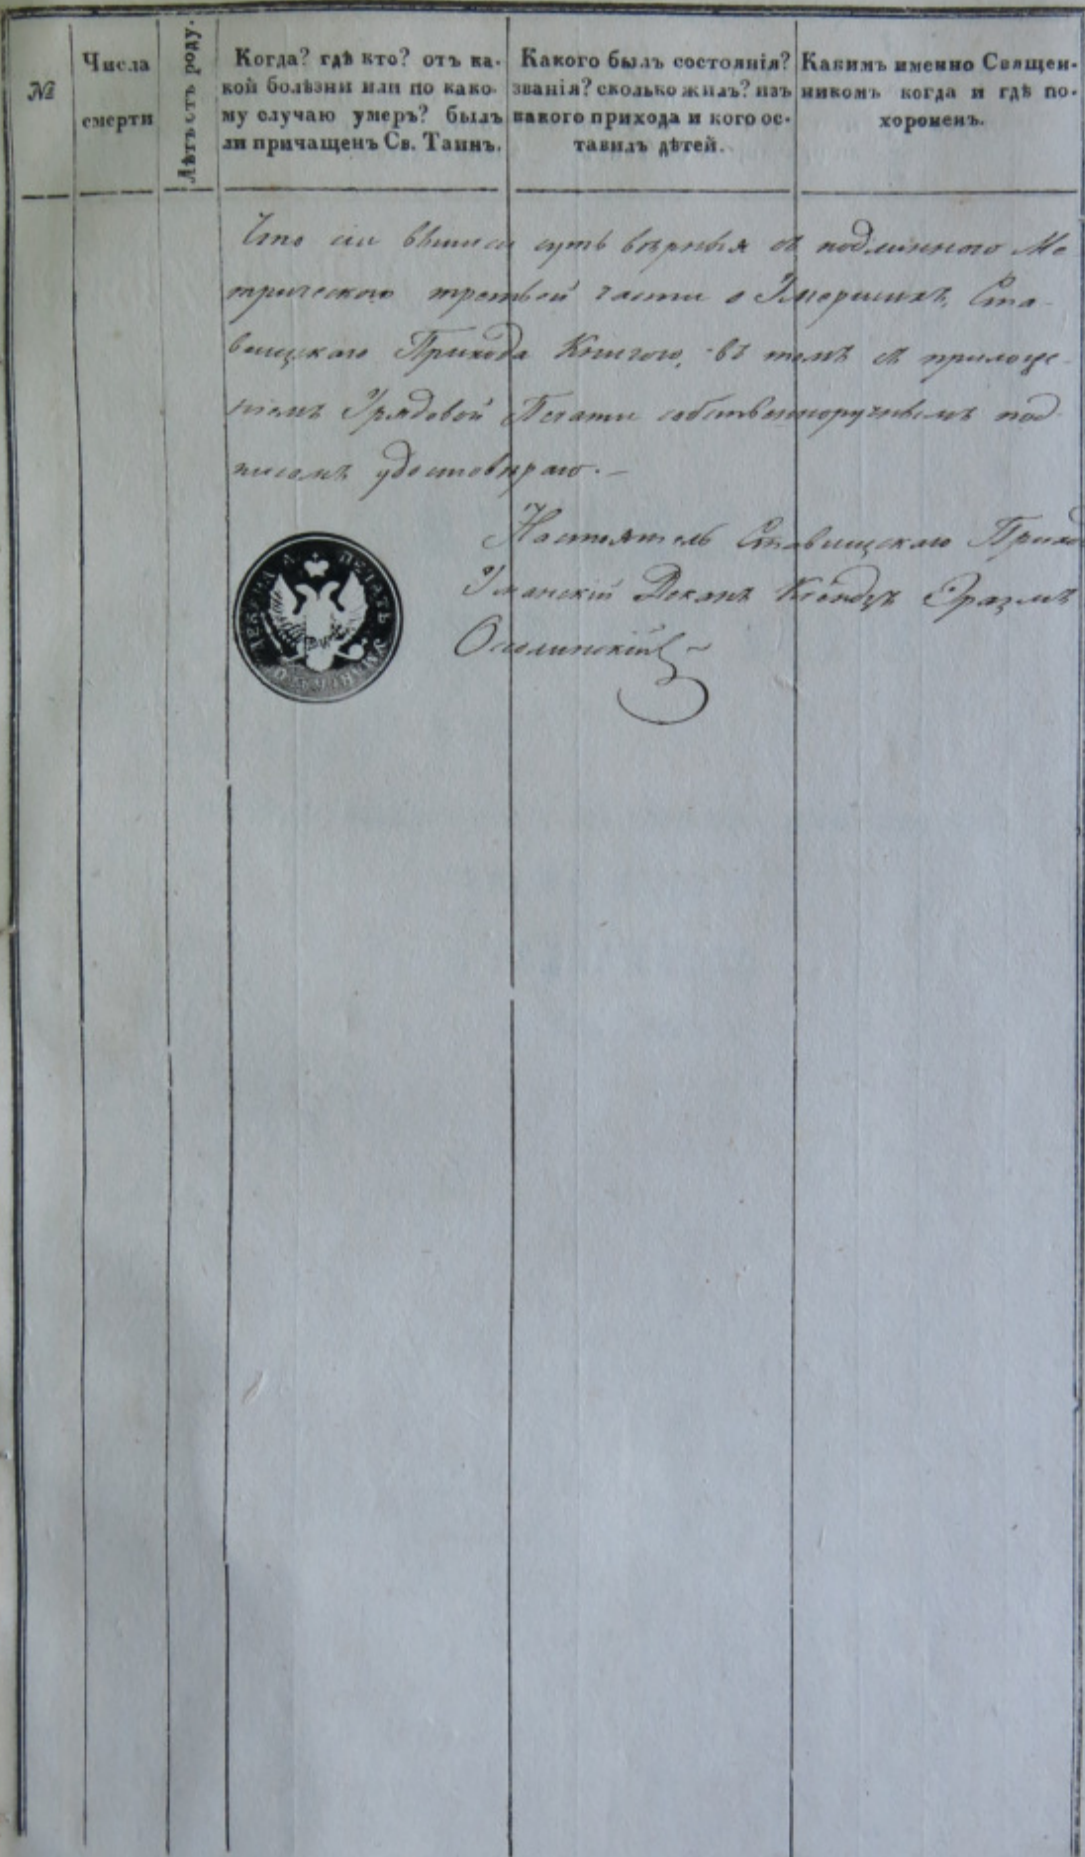 №
Числа
смерти
Лѣтъ отъ роду.
Когда? гдѣ кто? отъ ка-
кой болѣзни или по како-
му случаю умеръ? былъ
ли причащенъ Св. Таинъ.
Какого былъ состоянія?
званія? сколько жилъ? изъ
какого прихода и кого ос-
тавилъ дѣтей.
Какимъ именно Священ-
никомъ когда и гдѣ по-
хороненъ.
Что сіи выписи суть вѣрныя съ подлинною Ме
трическою третьей части о Умершихъ, Ста-
вищскаго Прихода Книгою, въ томъ съ приложе-
ніемъ Урядовой Печати собственноручнымъ под
писомъ удостовѣряю. —
Настоятель Ставищскаго Прихо
Уманскій Деканъ Ксендзъ Эразмъ
ПЕЧАТЬ УМАНСКАГО ДЕКАНА